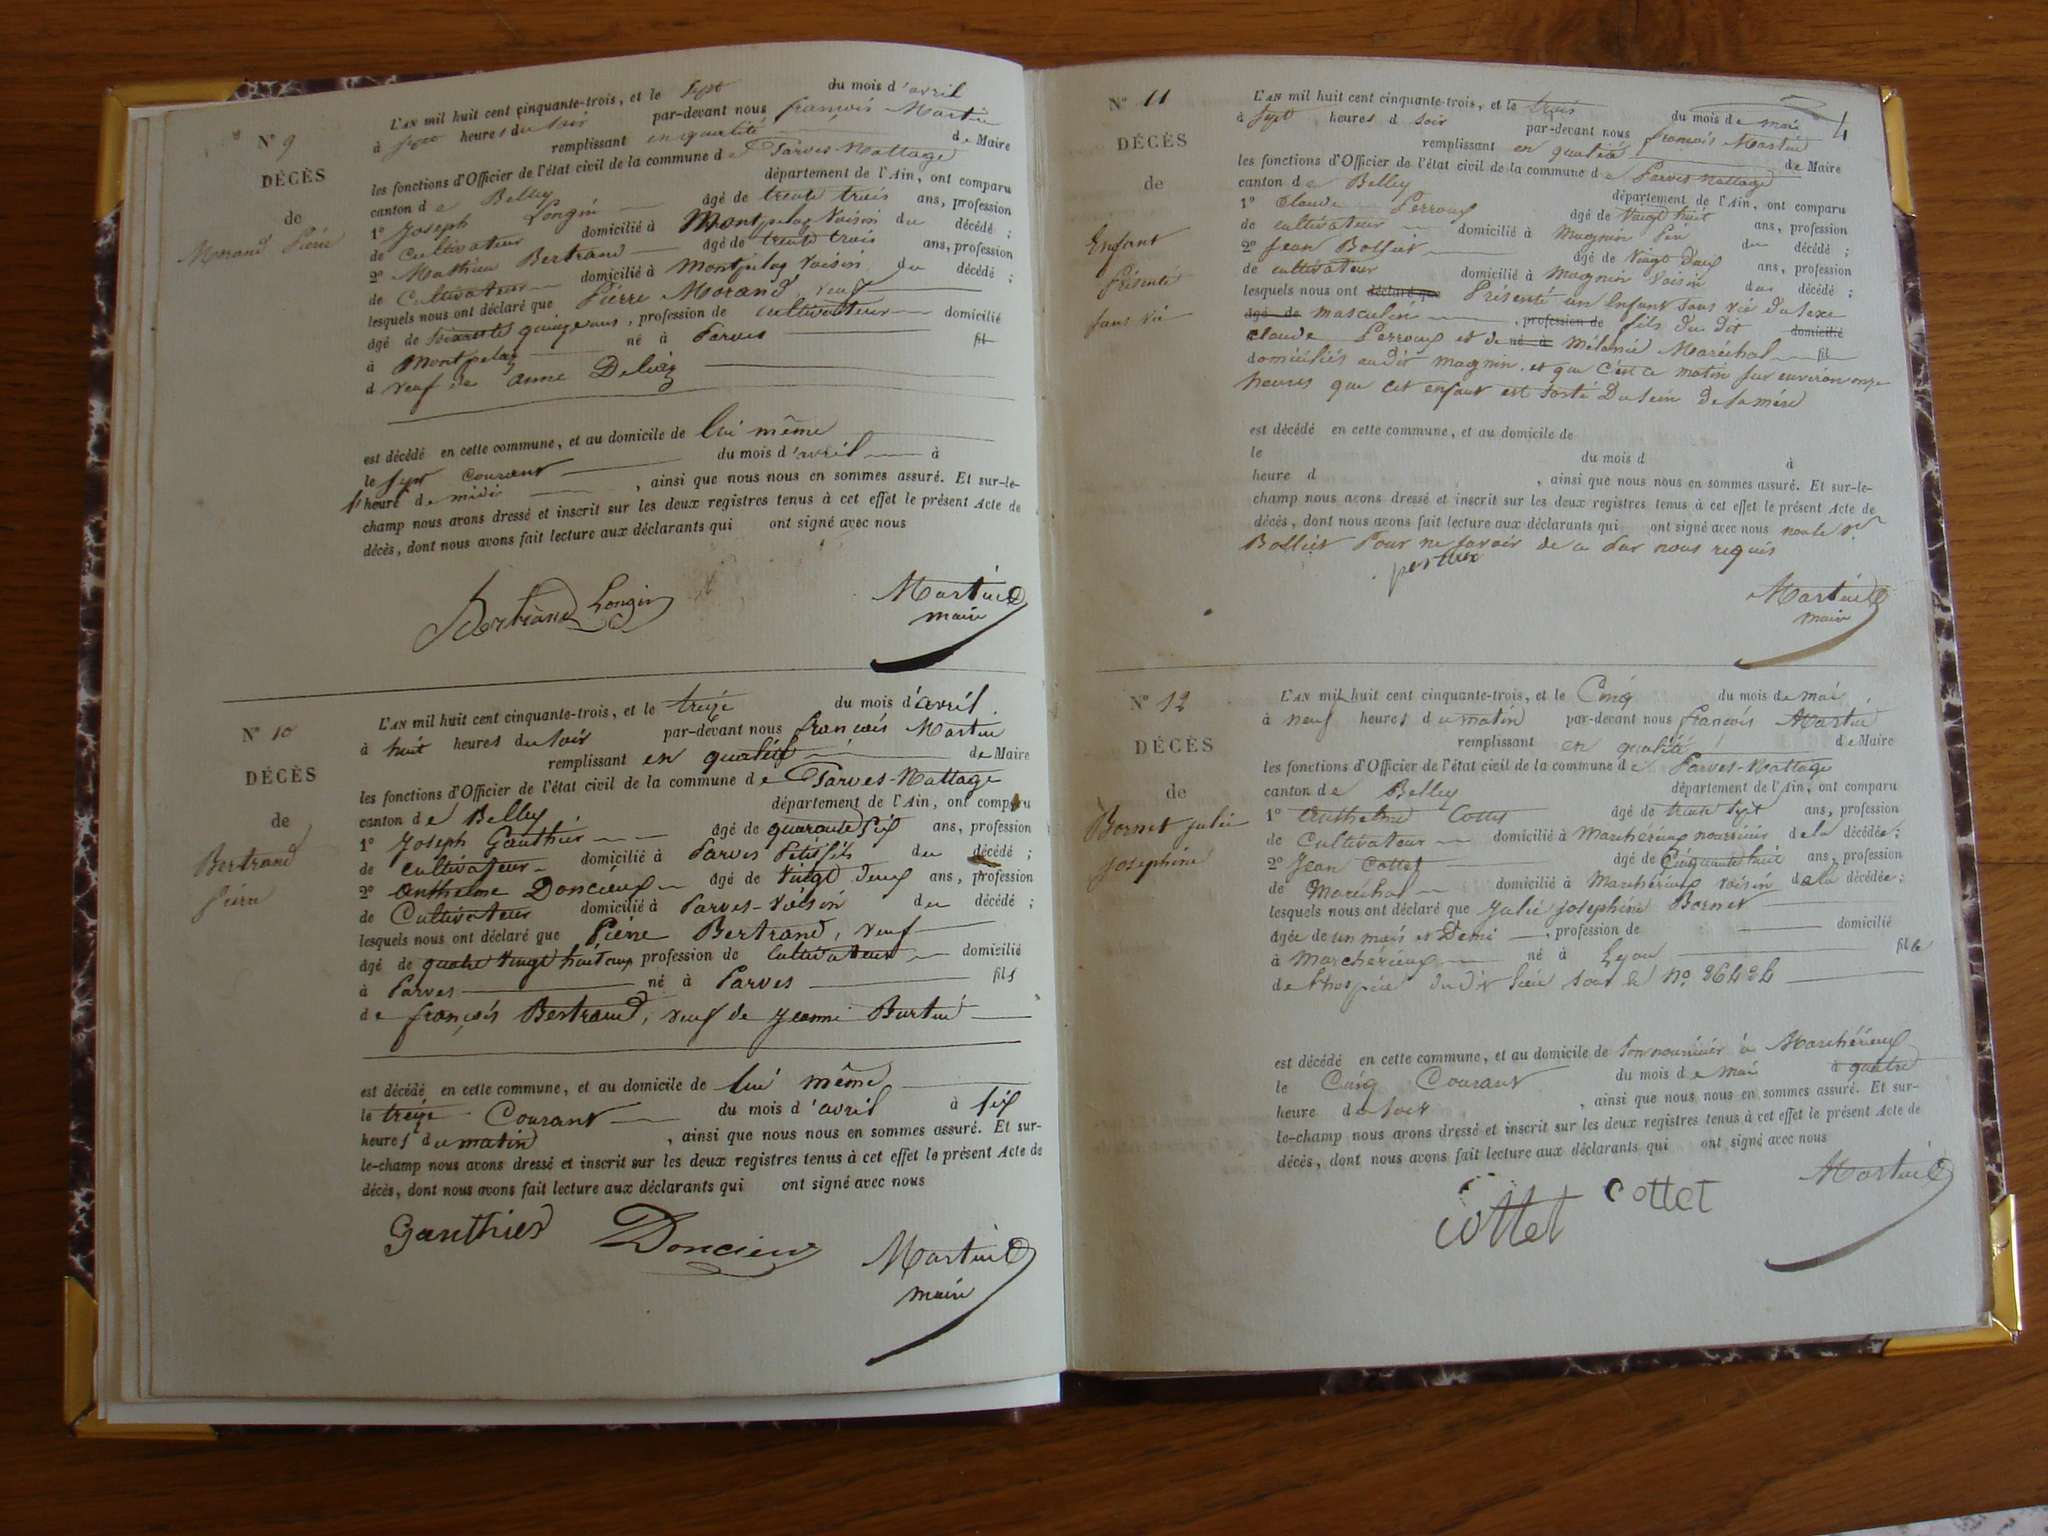 N° 9
DÉCÈS
de
Morand Pierre
L'AN mil huit cent cinquante-trois, et le sept du mois d'avril
à sept heures du soir par-devant nous françois Martin
remplissant en qualité de Maire
les fonctions d'Officier de l'état civil de la commune de Parves-Nattage
canton de Belley département de l'Ain, ont comparu
1° Joseph Longin âgé de trente trois ans, profession
de Cultivateur domicilié à Montpelaz Voisin du décédé ;
2° Mathieu Bertrand âgé de trente trois ans, profession
de Cultivateur domicilié à Montpelaz Voisin du décédé ;
lesquels nous ont déclaré que Pierre Morand, veuf
âgé de soixante quinze ans, profession de cultivateur domicilié
à Montpelaz né à Parves fil
d veuf de anne
est décédé en cette commune, et au domicile de lui même
le sept courant du mois d'avril à
l'heure de midi , ainsi que nous nous en sommes assuré. Et sur-le-
champ nous avons dressé et inscrit sur les deux registres tenus à cet effet le présent Acte de
décès, dont nous avons fait lecture aux déclarants qui ont signé avec nous
Bertrand Longin Martin
maire
N° 10
DÉCÈS
de
Bertrand
Pierre
L'AN mil huit cent cinquante-trois, et le treize du mois d'avril.
à huit heures du soir par-devant nous françois Martin
remplissant en qualité de Maire
les fonctions d'Officier de l'état civil de la commune de Parves-Nattage
canton de Belley département de l'Ain, ont comparu
1° Joseph Gauthier âgé de quarante six ans, profession
de cultivateur domicilié à Parves Petit fils du décédé ;
2° Anthelme Doncieux âgé de vingt deux ans, profession
de Cultivateur domicilié à Parves-Voisin du décédé ;
lesquels nous ont déclaré que Pierre Bertrand, veuf
âgé de quatre vingt huit ans profession de Cultivateur domicilié
à Parves né à Parves fils
de françois Bertrand, veuf de Jeanne Burtin
est décédé en cette commune, et au domicile de lui même
le treize Courant du mois d'avril à six
heures du matin , ainsi que nous nous en sommes assuré. Et sur-
le-champ nous avons dressé et inscrit sur les deux registres tenus à cet effet le présent Acte de
décès, dont nous avons fait lecture aux déclarants qui ont signé avec nous
Gauthier Doncieux Martin
maire
4
N° 11
DÉCÈS
de
Enfant
Présenté
sans vie
L'AN mil huit cent cinquante-trois, et le trois du mois de mai
à sept heures d soir par-devant nous françois Martin
remplissant en qualité de Maire
les fonctions d'Officier de l'état civil de la commune de Parves Nattage
canton de Belley département de l'Ain, ont comparu
1° Claude Perroux âgé de vingt huit ans, profession
de cultivateur domicilié à Magnin Père du décédé ;
2° Jean Bollier âgé de vingt deux ans, profession
de cultivateur domicilié à Magnin Voisin du décédé ;
lesquels nous ont déclaré que Présenté un Enfant sans vie du sexe
âgé de masculin , profession de fils du dit domicilié
claude Perroux et de né à Mélanie Maréchal fil
domiciliés audit magnin. et que c'est ce matin sur environ onze
heures que cet enfant est sorti du sein de sa mère
est décédé en cette commune, et au domicile de
le du mois d à
heure d , ainsi que nous nous en sommes assuré. Et sur-le-
champ nous avons dressé et inscrit sur les deux registres tenus à cet effet le présent Acte de
décès, dont nous avons fait lecture aux déclarants qui ont signé avec nous
Bollier Pour ne savoir de ce Par nous requis
Martin
maire
N° 12
DÉCÈS
de
Bornet Julie
Josephine
L'AN mil huit cent cinquante-trois, et le Cinq du mois de mai
à neuf heures du matin par-devant nous françois Martin
remplissant en qualité de Maire
les fonctions d'Officier de l'état civil de la commune de Parves-Nattage
canton de Belley département de l'Ain, ont comparu
1° Anthelme Cottet âgé de trente sept ans, profession
de Cultivateur domicilié à Marchérieux nourricier de la décédée ;
2° Jean Cottet âgé de Cinquante huit ans, profession
de Maréchal domicilié à Marchérieux voisin de la décédée ;
lesquels nous ont déclaré que Julie Josephine Bornet
âgée de un mois et Demi , profession de domicilié
à Marchérieux né à Lyon fille
de l'hospice du dit lieu sous le N° 36434
est décédé en cette commune, et au domicile de son nourricier à Marchérieux
le Cinq Courant du mois de mai à quatre
heure du soir , ainsi que nous nous en sommes assuré. Et sur-
le-champ nous avons dressé et inscrit sur les deux registres tenus à cet effet le présent Acte de
décès, dont nous avons fait lecture aux déclarants qui ont signé avec nous
cottet cottet Martin